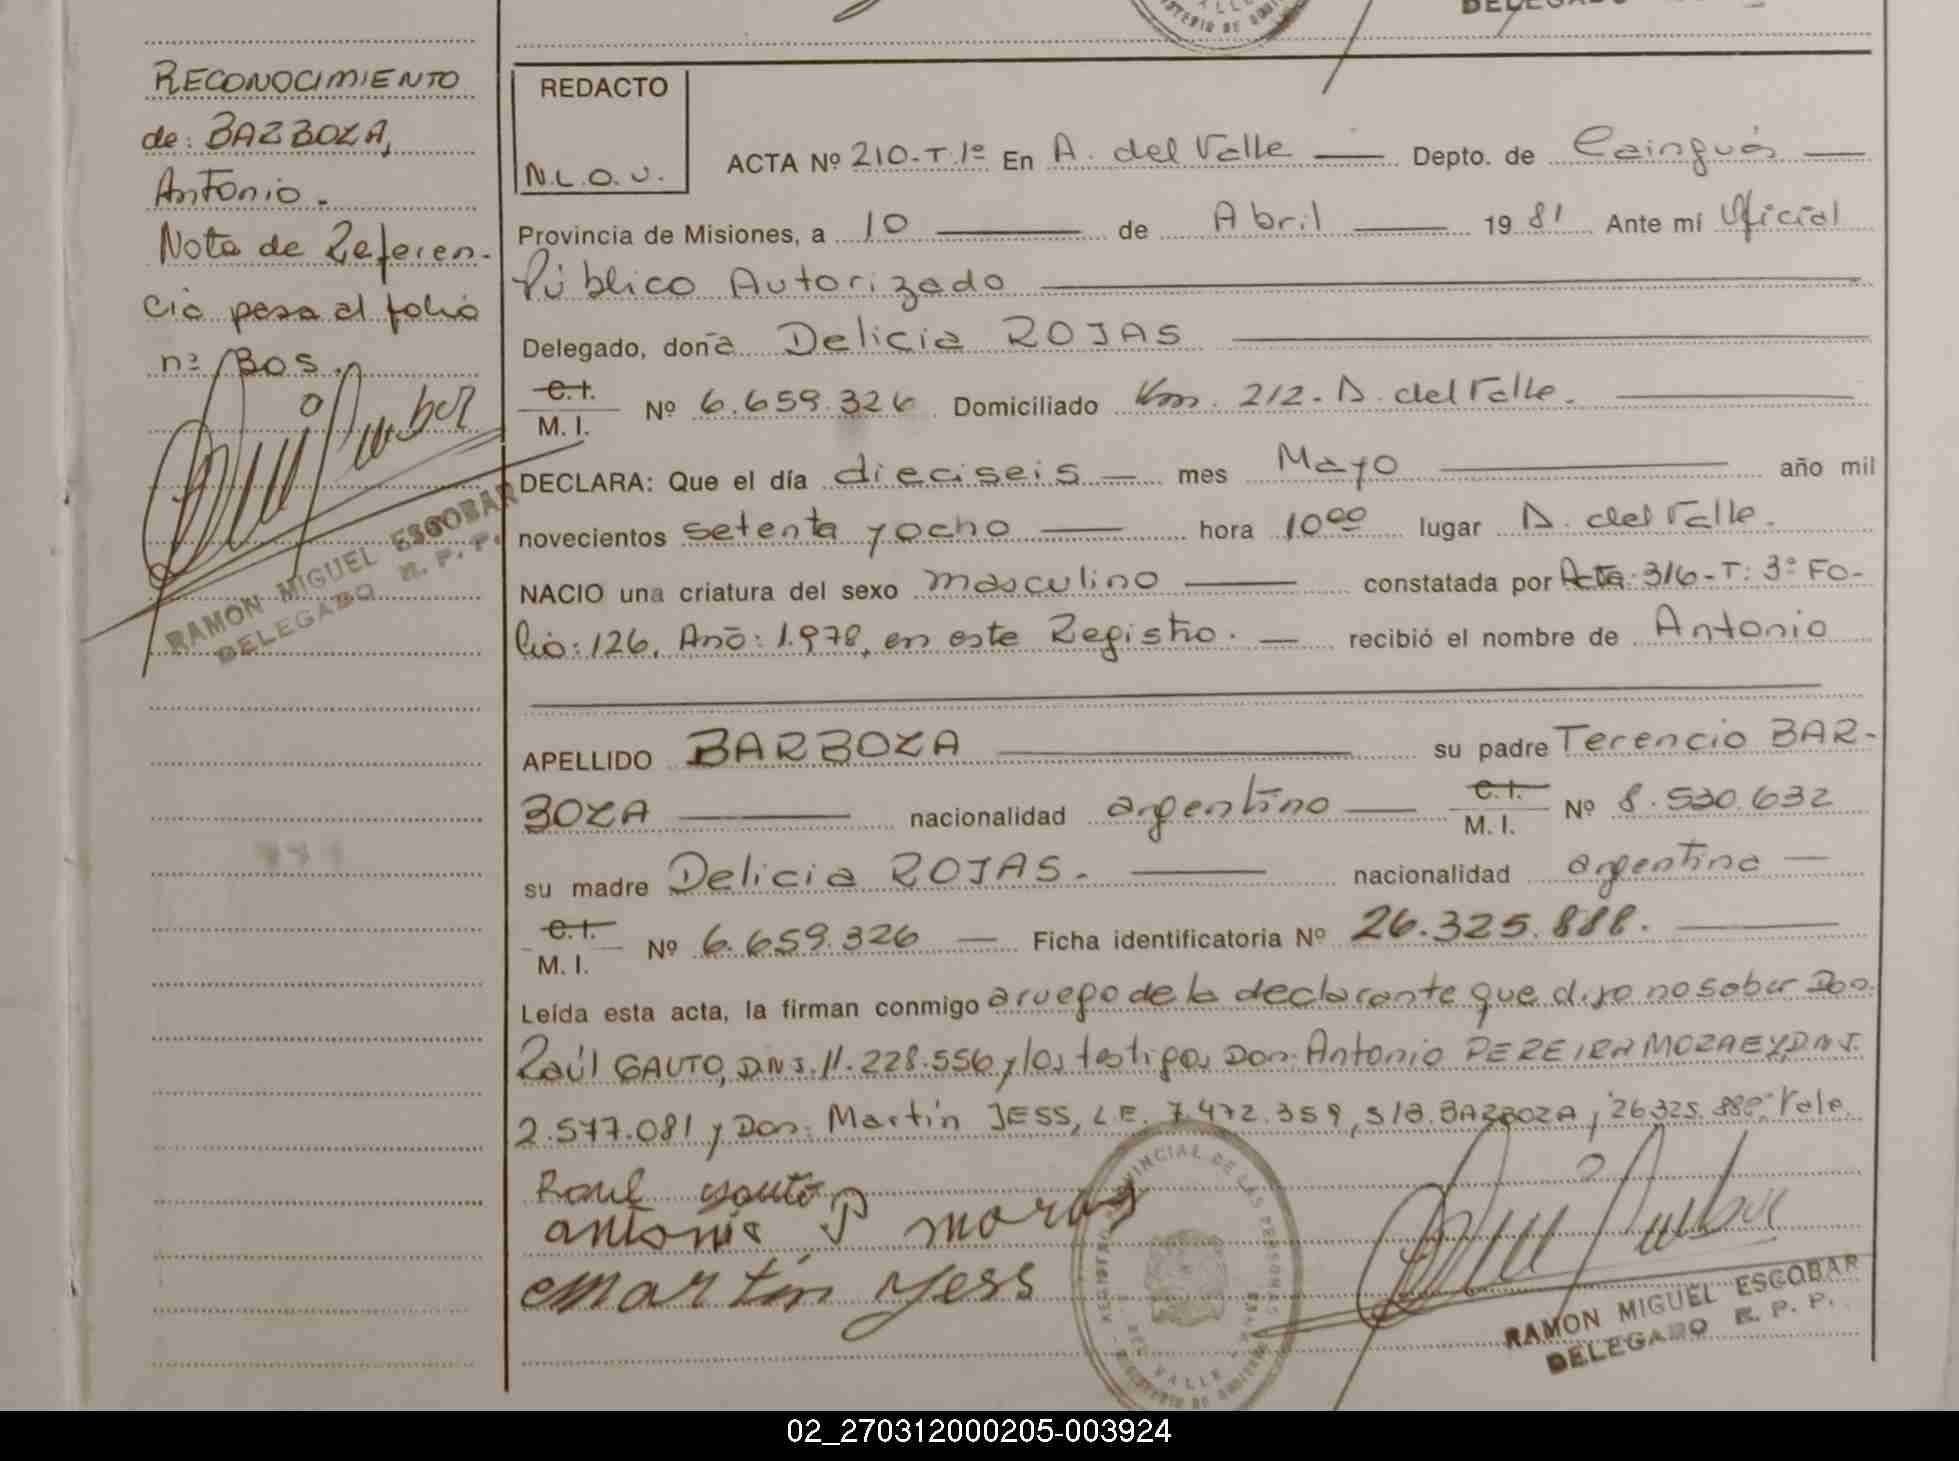 DELEGADO
RECONOCIMIENTO
de: BARBOZA,
Antonio.
Nota de Referen-
cia pasa al folio
nº: BOS.
RAMON MIGUEL ESCOBAR
DELEGADO R. P. P.
REDACTO
N.L.O.V.
ACTA Nº 210-T.1º En A. del Valle Depto. de Cainguás
Provincia de Misiones, a 10 de Abril 1981 Ante mí Oficial
Público Autorizado
Delegado, doña Delicia ROJAS
C.I.
M. I. Nº 6.659.326 Domiciliado Km. 212. A. del Valle.
DECLARA: Que el día dieciseis mes Mayo año mil
novecientos setenta y ocho hora 10ºº lugar A. del Valle.
NACIO una criatura del sexo masculino constatada por Acta: 316-T: 3º FO-
lio: 126, Año: 1.978, en este Registro. recibió el nombre de Antonio
APELLIDO BARBOZA su padre Terencio BAR-
BOZA nacionalidad argentino C.I. M. I. Nº 8.530.632
su madre Delicia ROJAS. nacionalidad argentina
C.I.
M. I. Nº 6.659.326 Ficha identificatoria Nº 26.325.888.
Leída esta acta, la firman conmigo a ruego de la declarante que dijo no saber Don
Raúl GAUTO, D.N.I. 11.228.556 y los testigos Don: Antonio PEREIRA MORAES, D.N.I.
2.577.081 y Don: Martín JESS, L.E. 7.472.359, S/B. BARBOZA, 26325.888: Vale.
Raul Gauto
antonio P moraes
Martin Yess
RAMON MIGUEL ESCOBAR
DELEGADO R. P. P.
02_270312000205-003924